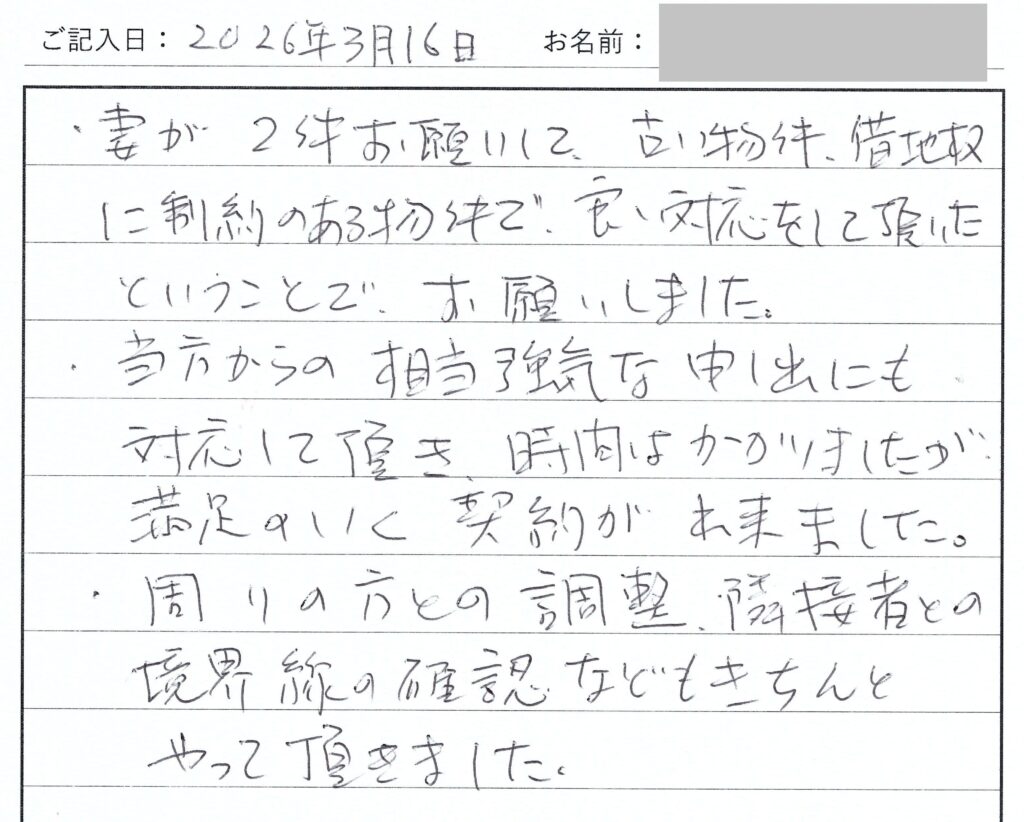 ご記入日： 2026年3月16日 お名前：
・妻が 2件お願いして、古い物件、借地权
に制約のある物件で、良い対応をして頂いた
ということで、お願いしました。
・当方からの相当強気な申し出にも
対応して頂き、時間はかかりましたが、
満足のいく契約が出来ました。
・周りの方との調整、隣接者との
境界線の確認などもきちんと
やって頂きました。